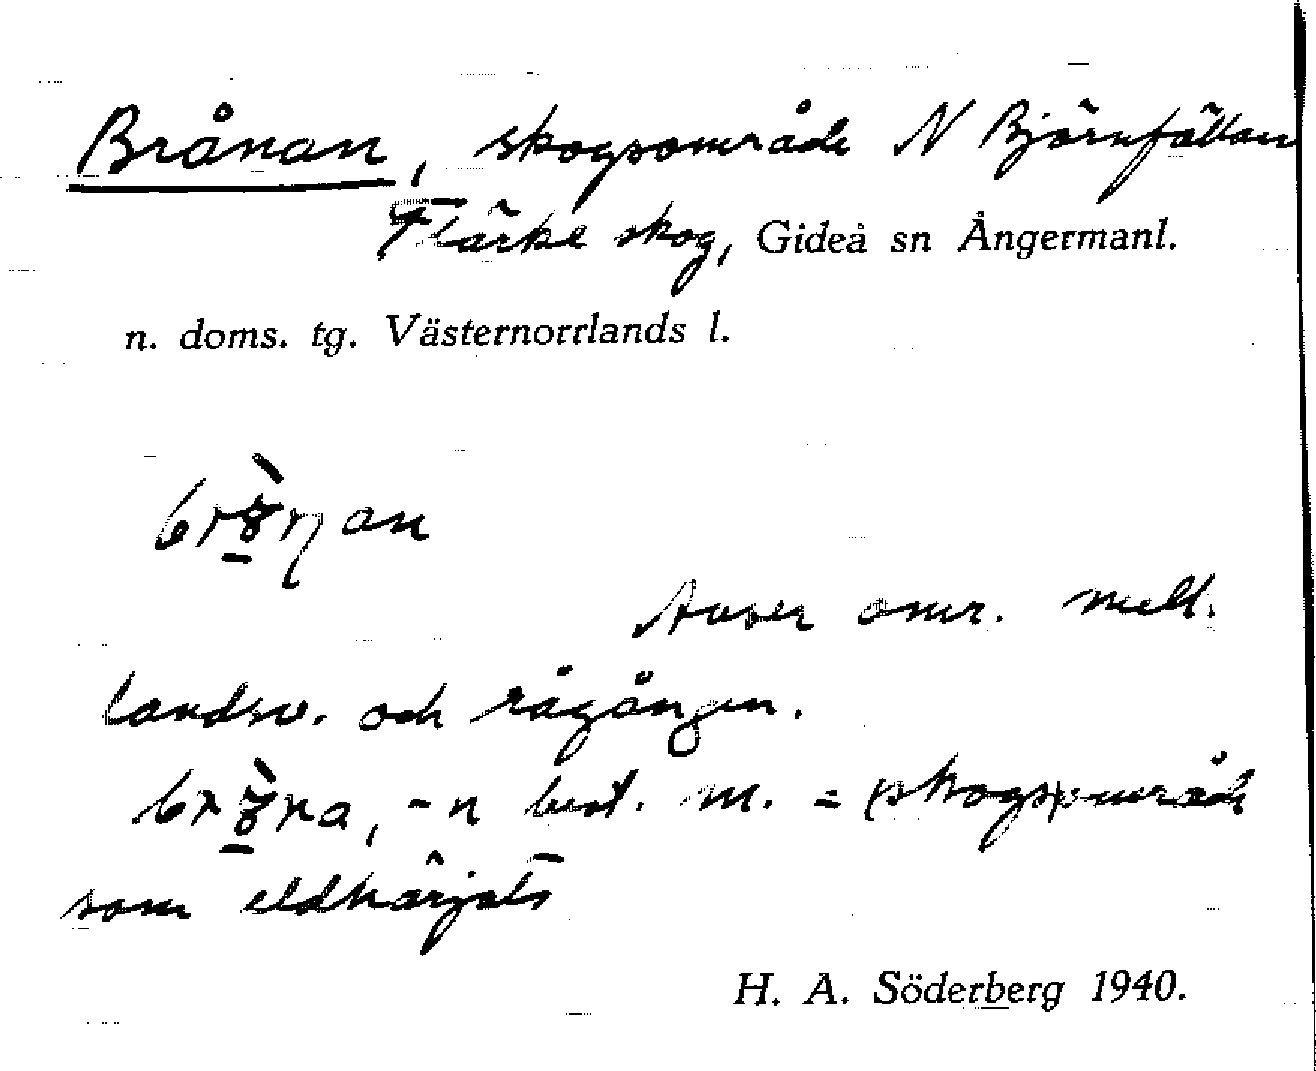 Brånan, skogsområde N Björnfällan
Flärke skog, Gideå sn Ångermanl.
n. doms. tg. Västernorrlands l.
Avser omr. mell.
landsv. och rågången.
-n best. m. = skogsområde
som eldhärjats
H. A. Söderberg 1940.